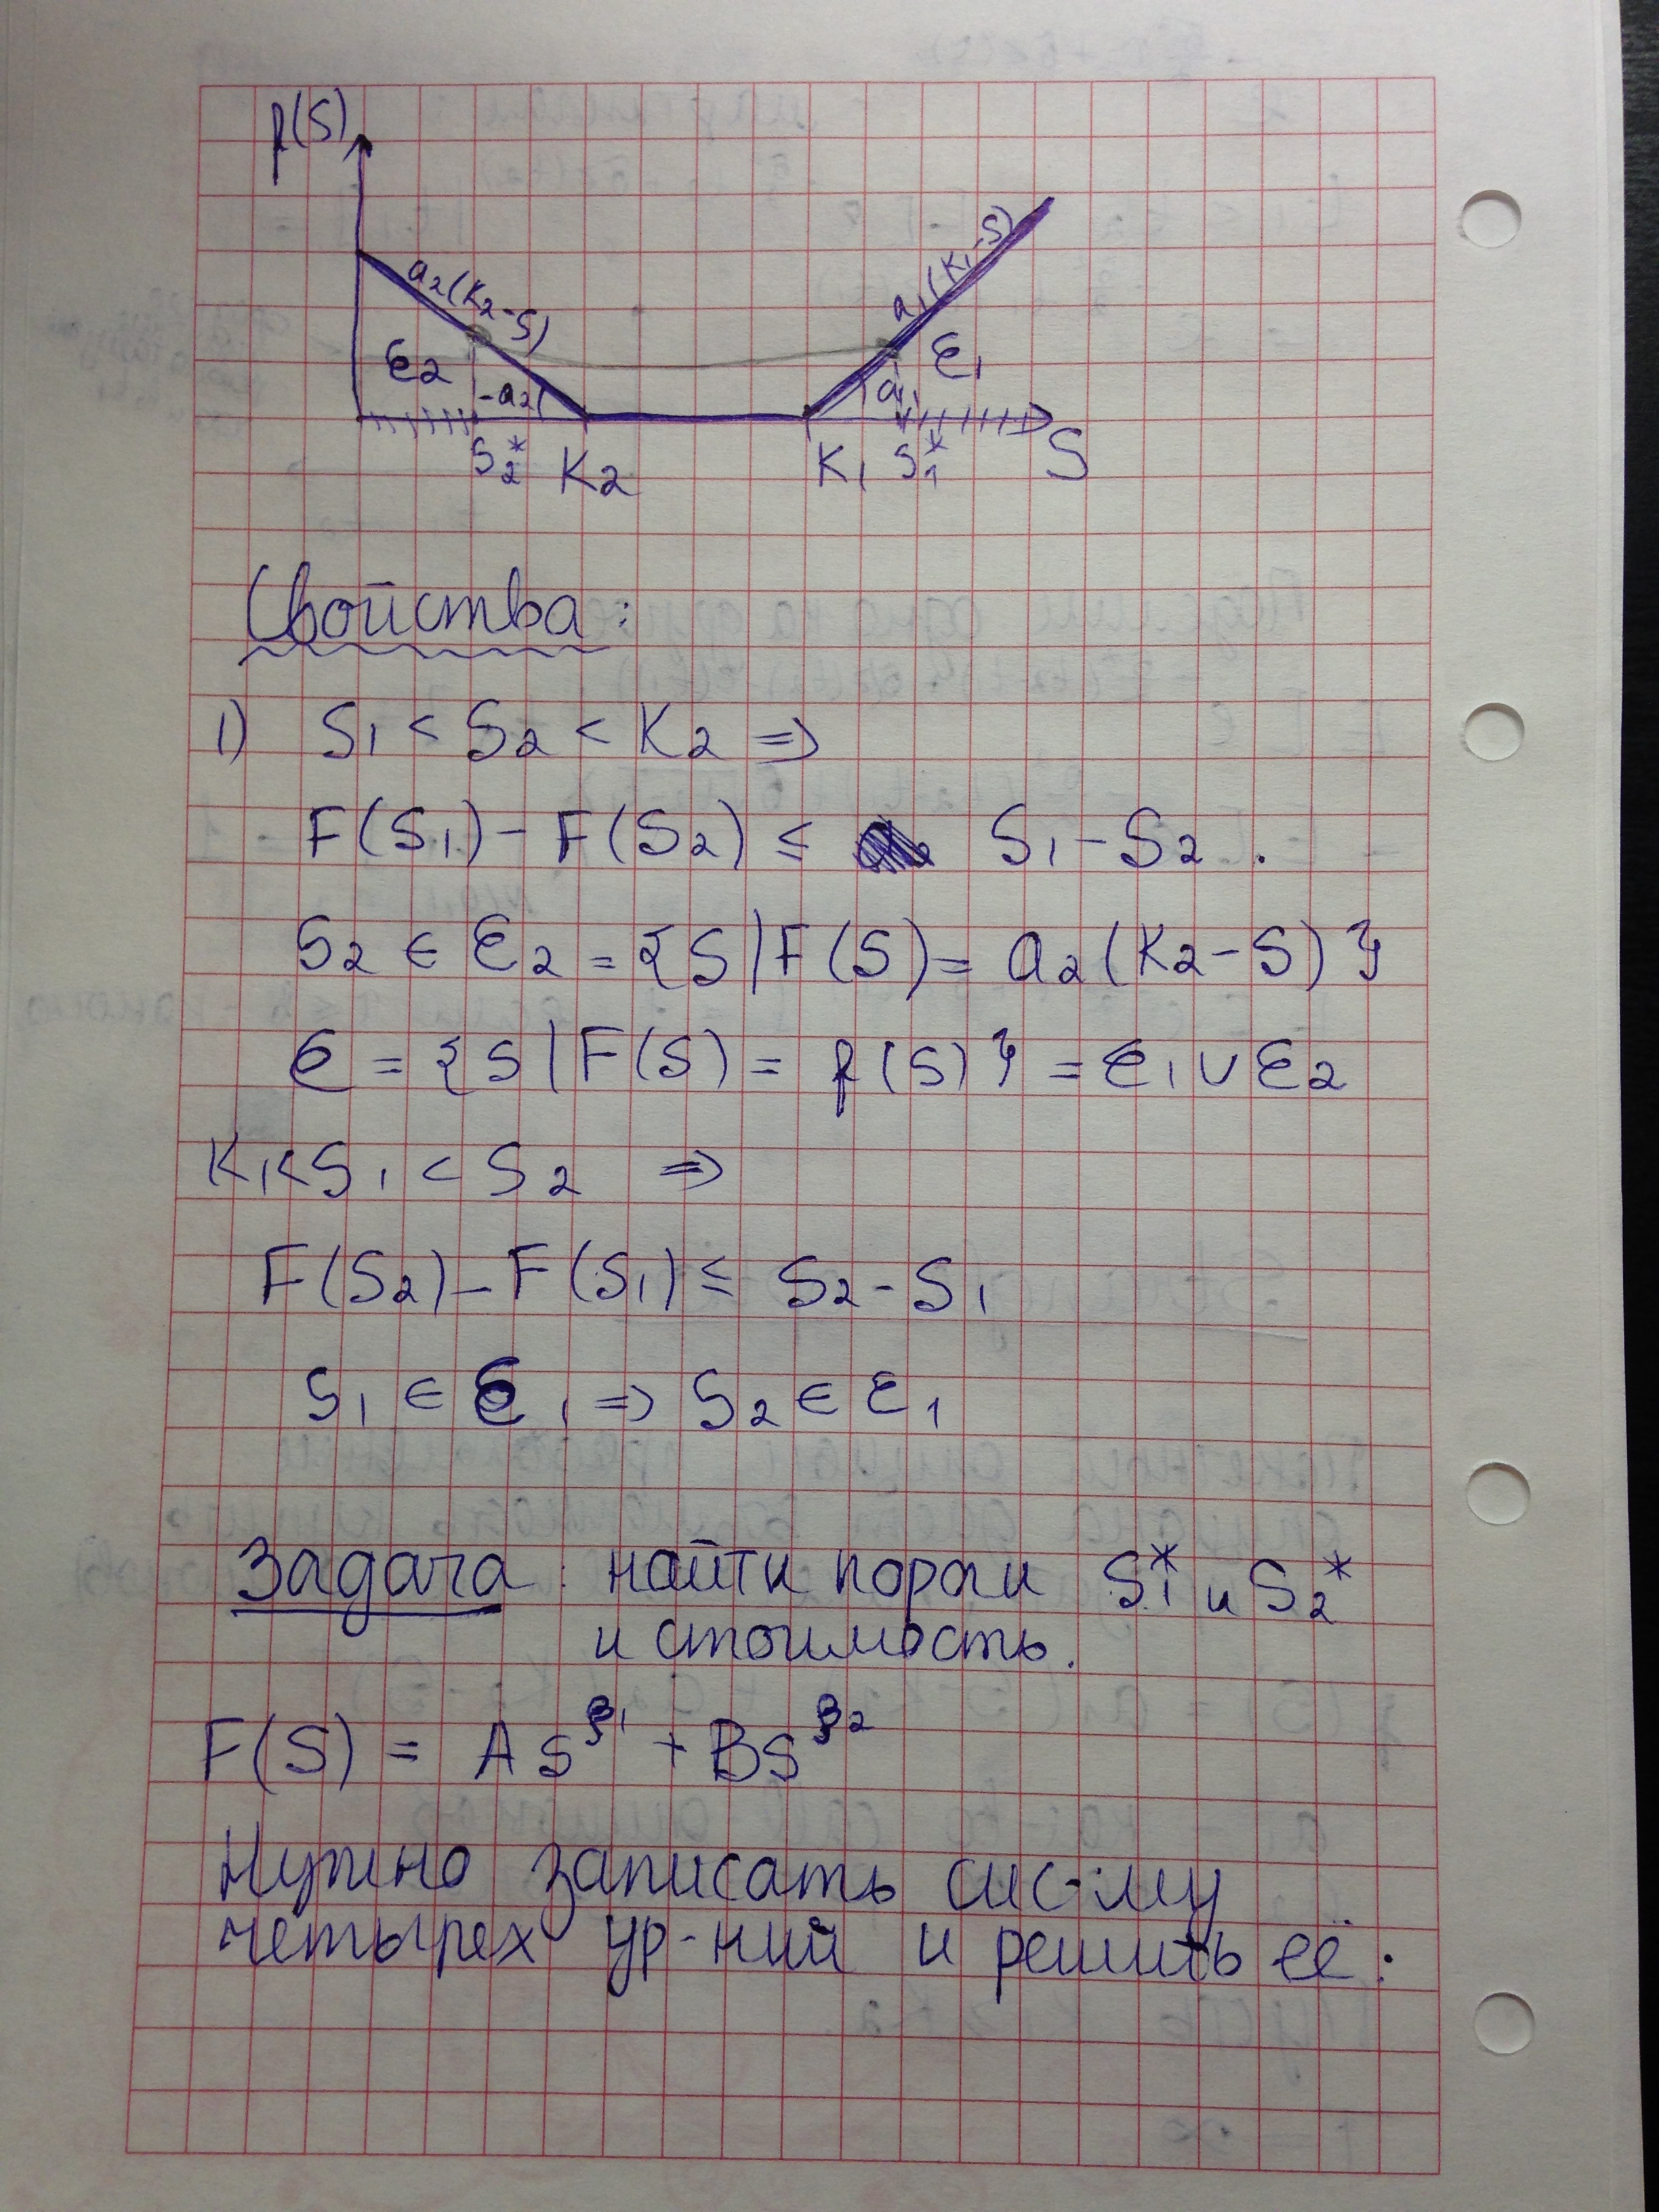 f(S)
a₂(K₂-S)
a₁(K₁-S)
ε₂
-a₂
a₁
ε₁
S₂*
K₂
K₁
S₁*
S
Свойства:
1) S₁ < S₂ < K₂ ⇒
F(S₁) - F(S₂) ≤ S₁ - S₂ .
S₂ ∈ ε₂ = {S | F(S) = a₂(K₂-S)}
ε = {S | F(S) = f(S)} = ε₁ ∪ ε₂
K₁ < S₁ < S₂ ⇒
F(S₂) - F(S₁) ≤ S₂ - S₁
S₁ ∈ ε₁ ⇒ S₂ ∈ ε₁
Задача: найти пороги S₁* и S₂*
и стоимость.
F(S) = AS^β₁ + BS^β₂
Нужно записать сис-му
четырех ур-ний и решить её: